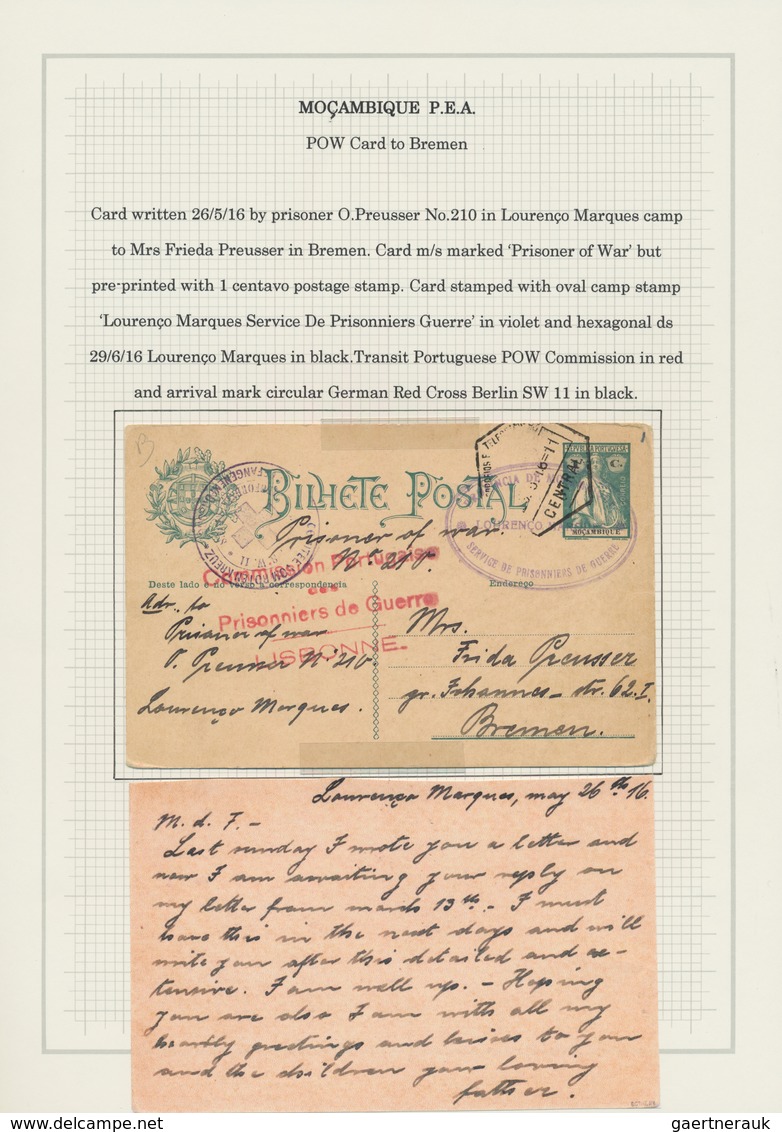 MOÇAMBIQUE P.E.A.
POW Card to Bremen
Card written 26/5/16 by prisoner O.Preusser No.210 in Lourenço Marques camp
to Mrs Frieda Preusser in Bremen. Card m/s marked ‘Prisoner of War’ but
pre-printed with 1 centavo postage stamp. Card stamped with oval camp stamp
‘Lourenço Marques Service De Prisonniers Guerre’ in violet and hexagonal ds
29/6/16 Lourenço Marques in black.Transit Portuguese POW Commission in red
and arrival mark circular German Red Cross Berlin SW 11 in black.
B
1
REPUBLICA PORTUGUESA
C.
CORREIO
MOÇAMBIQUE
CENTRAL
BILHETE POSTAL
LOURENÇO
SERVICE DE PRISONNIERS DE GUERRE
S.W. 11
Prisoner of war
No. 210.
Commission Portugaise
des
Prisonniers de Guerre
LISBONNE
Deste lado e no verso correspondencia
Endereço
Adr. to
Prisoner of war
O. Preusser No 210
Lourenço Marques.
Mrs.
Frida Preusser
gr. Johannes-str. 62.I.
Bremen.
Lourenço Marques, may 26th 16.
M. d. F. -
Last sunday I wrote you a letter and
now I am awaiting your reply on
my letter from march 13th - I must
have this in the next days and will
write you after this detailed and ex-
tensive. I am well up. - Hoping
you are also I am with all my
heartly greetings and kisses to you
and the children your loving
father.
gaertnerauk